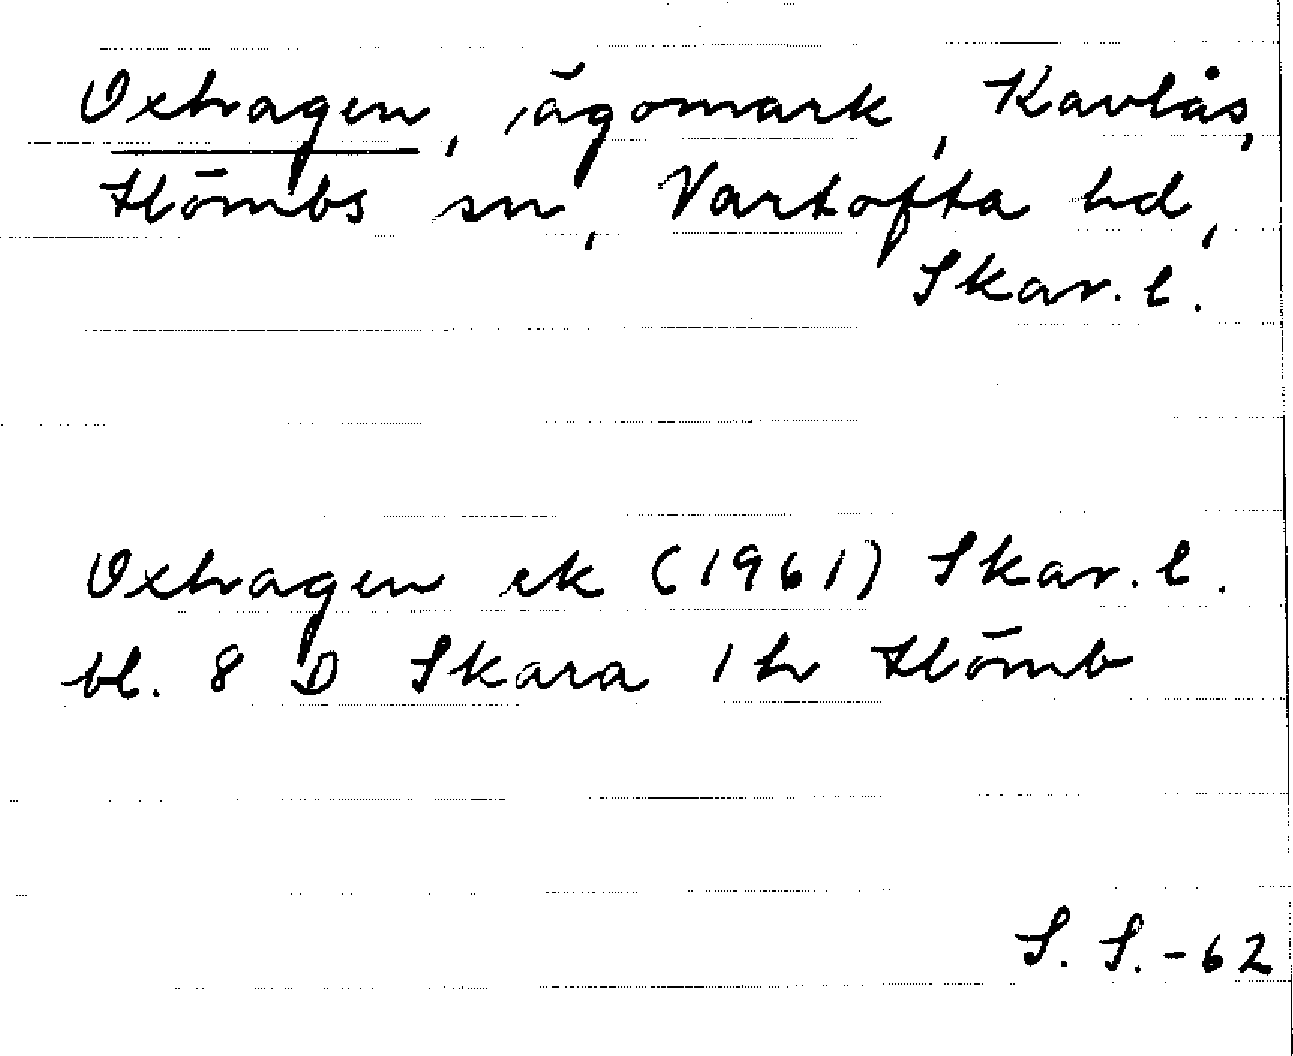 Oxhagen, ägomark, Kavlås,
Hömbs sn, Vartofta hd,
Skar. l.
Oxhagen ek (1961) Skar. l.
bl. 8 D Skara 1 h Hömb
S. S. -62